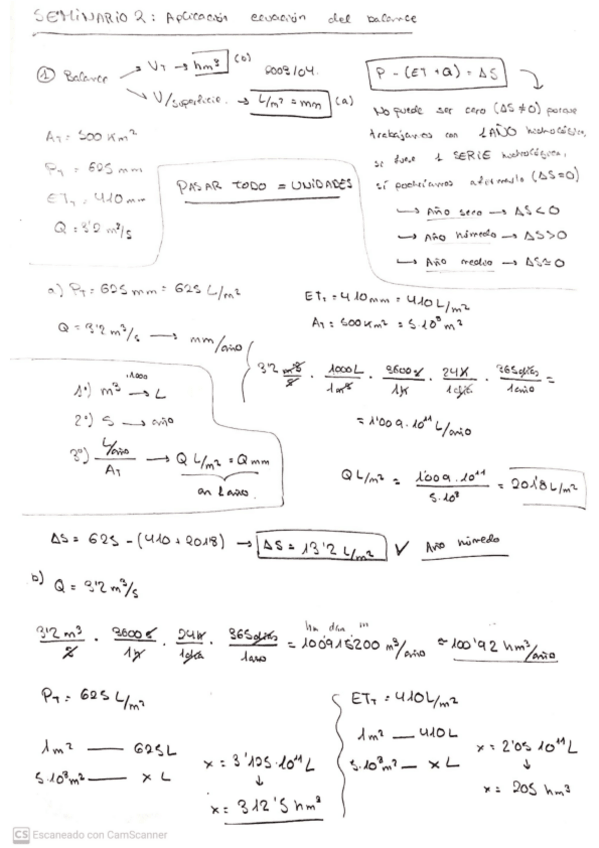 SEMINARIO 2: Aplicación ecuación del balance
① Balance → VT → hm³ (b) 2003/04.
→ V/superficie. → L/m² = mm (a)
P - (ET + Q) = ΔS
No puede ser cero (ΔS ≠ 0) porque
trabajamos con 1 AÑO hidrológico,
si fuese 1 SERIE hidrológica,
sí podríamos afirmarlo (ΔS=0)
→ Año seco → ΔS<0
→ Año húmedo → ΔS>0
→ Año medio → ΔS≈0
AT = 500 Km²
PT = 625 mm
ETT = 410 mm
Q = 3'2 m³/s
PASAR TODO = UNIDADES
a) PT = 625 mm = 625 L/m²
ETT = 410 mm = 410 L/m²
AT = 500 Km² = 5·10⁸ m²
Q = 3'2 m³/s → mm/año
3'2 m³/s · 1000L/1m³ · 3600s/1h · 24h/1día · 365días/1año =
= 1'009·10¹¹ L/año
1º) m³ ·1000→ L
2º) s → año
3º) L/año / AT → Q L/m² = Q mm
en 1 año.
Q L/m² = 1'009·10¹¹ / 5·10⁸ = 201'8 L/m²
ΔS = 625 - (410 + 201'8) → ΔS = 13'2 L/m² ✓ Año húmedo
b) Q = 3'2 m³/s
hm dam m
3'2 m³/s · 3600s/1h · 24h/1día · 365días/1año = 100915200 m³/año ≈ 100'92 hm³/año
PT = 625 L/m²
1m² — 625L
5·10⁸m² — x L
x = 3'125·10¹¹ L
↓
x = 312'5 hm³
ETT = 410 L/m²
1m² — 410L
5·10⁸m² — x L
x = 2'05·10¹¹ L
↓
x = 205 hm³
CS Escaneado con CamScanner